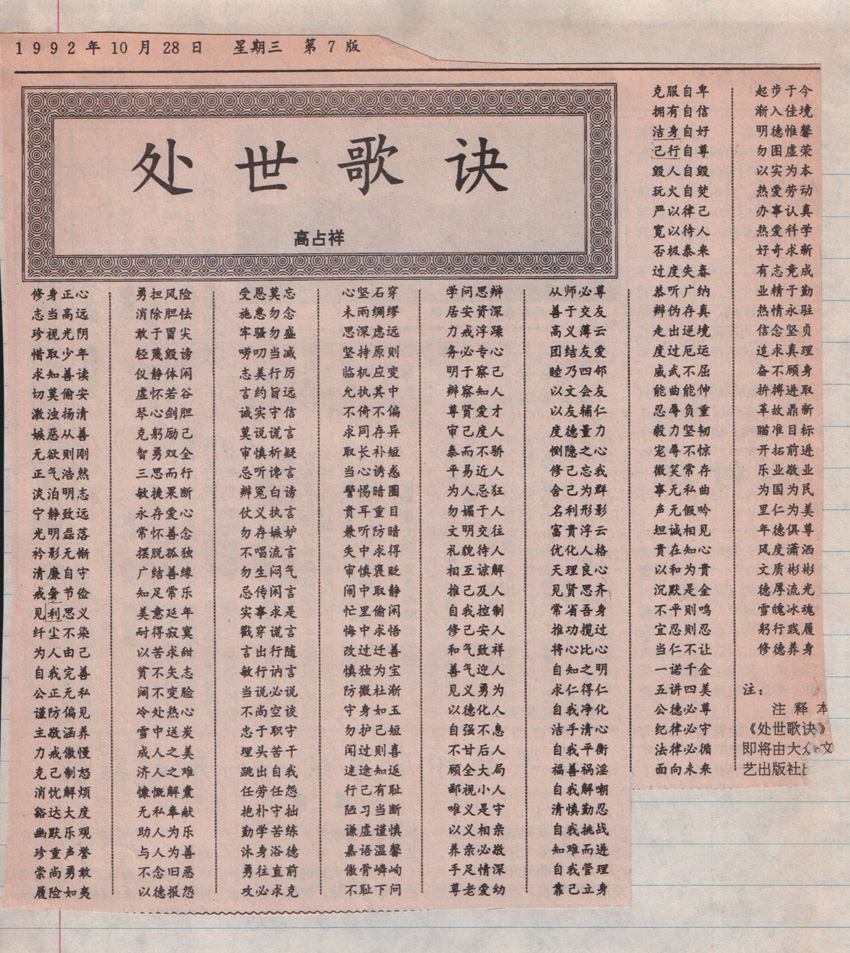 1992年10月28日 星期三 第7版
处世歌诀
高占祥
修身正心
志当高远
珍视光阴
惜取少年
求知善读
切莫偷安
激浊扬清
嫉恶从善
无欲则刚
正气浩然
淡泊明志
宁静致远
光明磊落
衿影无惭
清廉自守
戒奢节俭
见利思义
纤尘不染
为人由己
自我完善
公正无私
谨防偏见
主敬涵养
力戒傲慢
克己制怒
消忧解烦
豁达大度
幽默乐观
珍重声誉
崇尚勇敢
履险如夷
勇担风险
消除胆怯
敢于冒尖
轻蔑毁谤
仪静体闲
虚怀若谷
琴心剑胆
克躬励己
智勇双全
三思而行
敏捷果断
永存爱心
常怀善念
摆脱孤独
广结善缘
知足常乐
美意延年
耐得寂寞
以苦求甜
贫不矢志
闻不变脸
冷处热心
雪中送炭
成人之美
济人之难
慷慨解囊
无私奉献
助人为乐
与人为善
不念旧恶
以德报怨
受恩莫忘
施惠勿念
牢骚勿盛
唠叨当减
志美行厉
言约旨远
诚实守信
莫说谎言
审慎祈疑
忌听谗言
辩冤白谤
仗义执言
勿存嫉妒
不唱流言
勿生闷气
忌传闲言
实事求是
戳穿谎言
言出行随
敏行讷言
当说必说
不尚空谈
忠于职守
埋头苦干
跳出自我
任劳任怨
抱朴守拙
勤学苦练
沐身浴德
勇往直前
攻必求克
心坚石穿
未雨绸缪
思深虑远
坚持原则
临机应变
允执其中
不倚不偏
求同存异
取长补短
当心诱惑
警惕暗圈
贵耳重目
兼听防暗
失中求得
审慎褒贬
闹中取静
忙里偷闲
悔中求悟
改过迁善
慎独为宝
防微杜渐
守身如玉
勿护己短
闻过则喜
迷途知返
行己有耻
陋习当断
谦虚谨慎
嘉语温馨
傲骨嶙峋
不耻下问
学问思辩
居安资深
力戒浮躁
务必专心
明于察己
辩察知人
尊贤爱才
审己度人
泰而不骄
平易近人
为人忌狂
勿媚于人
文明交往
礼貌待人
相互谅解
推己及人
自我控制
修己安人
和气致祥
善气迎人
见义勇为
以德化人
自强不息
不甘后人
顾全大局
鄙视小人
唯义是守
以义相亲
养亲必敬
手足情深
尊老爱幼
从师必尊
善于交友
高义薄云
团结友爱
睦乃四邻
以文会友
以友辅仁
度德量力
恻隐之心
修己忘我
舍己为群
名利形影
富贵浮云
优化人格
天理良心
见贤思齐
常省吾身
推功揽过
将心比心
自知之明
求仁得仁
自我净化
洁手清心
自我平衡
福善祸淫
自我解嘲
清慎勤忍
自我挑战
知难而进
自我管理
靠己立身
克服自卑
拥有自信
洁身自好
己行自尊
毁人自毁
玩火自焚
严以律己
宽以待人
否极泰来
过度失春
恭听广纳
辩伪存真
走出逆境
度过厄运
威武不屈
能曲能伸
忍辱负重
毅力坚韧
宠辱不惊
微笑常存
事无私曲
声无假吟
坦诚相见
贵在知心
以和为贵
沉默是金
不平则鸣
宜忍则忍
当仁不让
一诺千金
五讲四美
公德必尊
纪律必守
法律必循
面向未来
起步于今
渐入佳境
明德惟馨
勿图虚荣
以实为本
热爱劳动
办事认真
热爱科学
好奇求新
有志竟成
业精于勤
热情永驻
信念坚贞
追求真理
奋不顾身
拚搏进取
革故鼎新
瞄准目标
开拓前进
乐业敬业
为国为民
里仁为美
年德俱尊
风度潇洒
文质彬彬
德厚流光
雪魄冰魂
躬行践履
修德养身
注：
注释本
《处世歌诀》
即将由大众文
艺出版社出